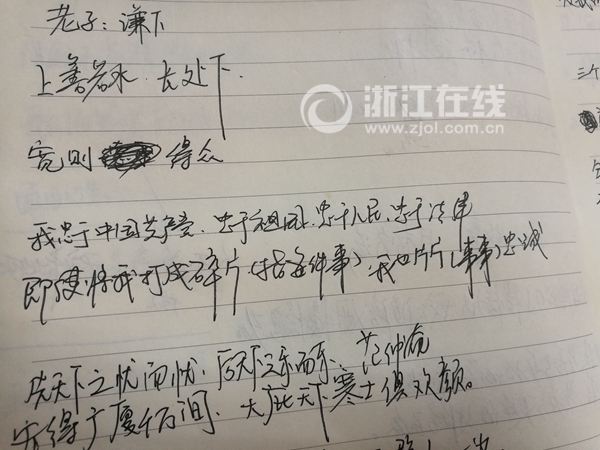 老子：谦下
上善若水．长处下．
宽则 得众
我忠于中国共产党、忠于祖国、忠于人民、忠于法律
即使将我打成碎片（指每件事）我也片片（事事）忠诚
先天下之忧而忧，后天下之乐而乐、范仲淹
安得广厦千万间，大庇天下寒士俱欢颜。
浙江在线
www.zjol.com.cn
三个